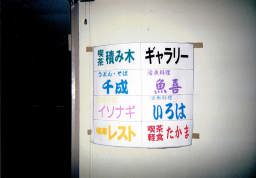 喫茶 積み木
ギャラリー
うどん・そば
千成
活魚料理
魚喜
イソナギ
いろは
レスト
喫茶 軽食 たかま